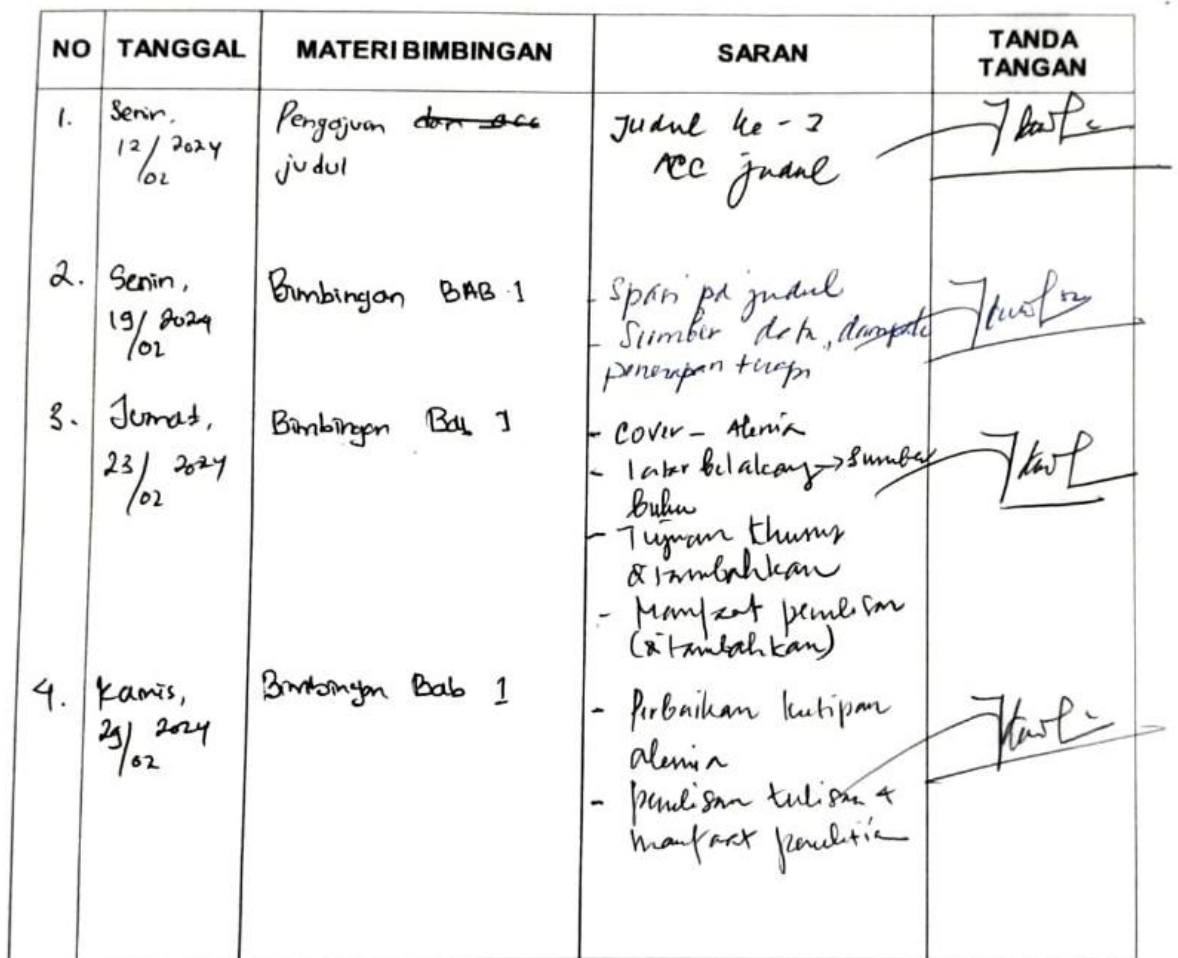 NO TANGGAL MATERI BIMBINGAN SARAN TANDA TANGAN
1. Senin, 12/02 2024
Pengajuan dan acc
judul
Judul ke - 3
ACC judul
2. Senin, 19/02 2024
Bimbingan BAB 1
- pd judul
- Sumber data, dampak
penerapan terapi
3. Jumat, 23/02 2024
Bimbingan Bab 1
- Cover - Alenia
- latar belakang → Sumber
buku
- Tujuan khusus
ditambahkan
- Manfaat penulisan
(ditambahkan)
4. Kamis, 29/02 2024
Bimbingan Bab 1
- Perbaikan kutipan
alenia
- penulisan tulisan &
manfaat